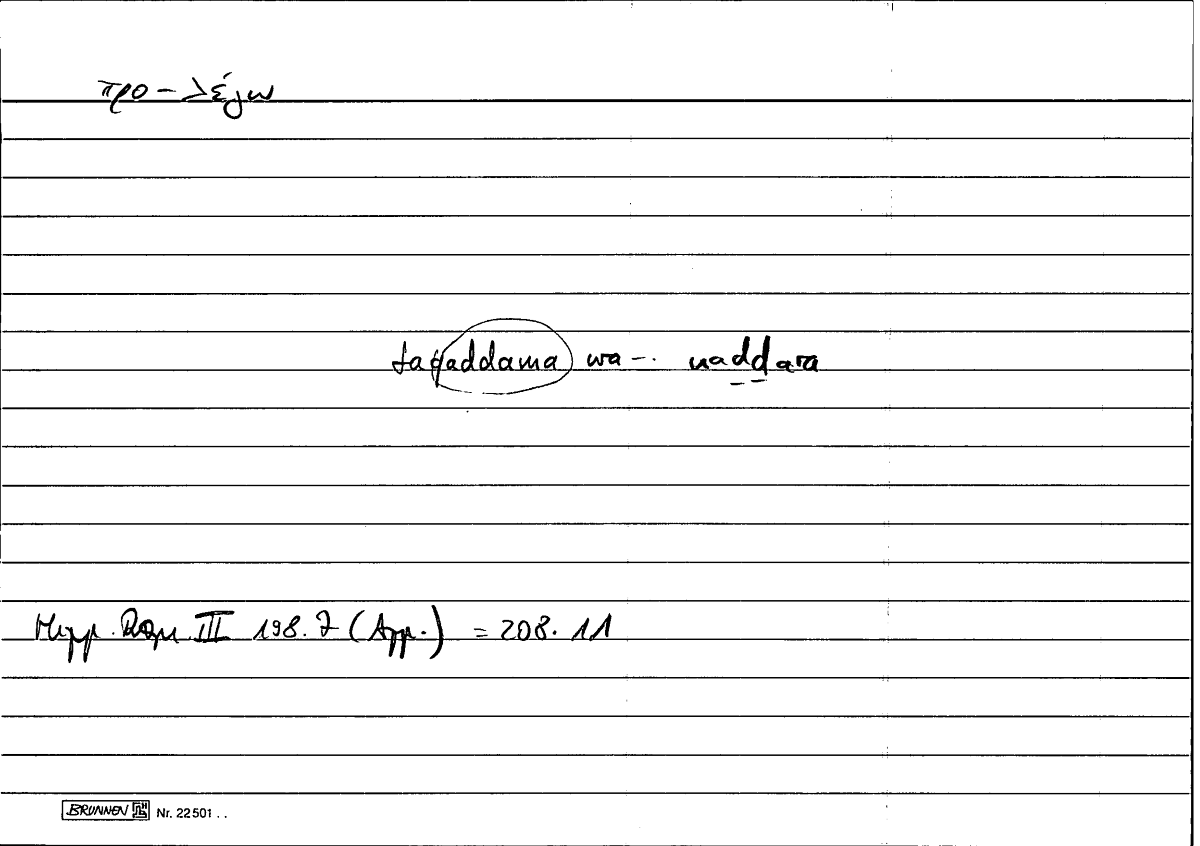 προ-λέγω
taqaddama wa-. naḏḏara
Hipp. Progn. III 198.7 (App.) = 208.11
BRUNNEN Nr. 22501 . .